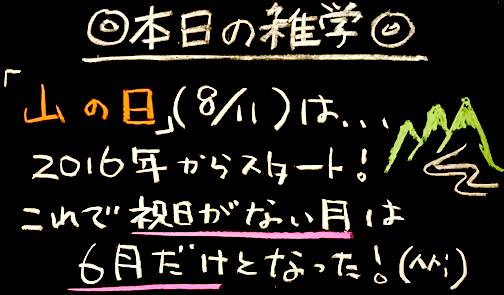 ◎本日の雑学◎
「山の日」(8/11)は...
2016年からスタート!
これで祝日がない月は
6月だけとなった!(^^;)